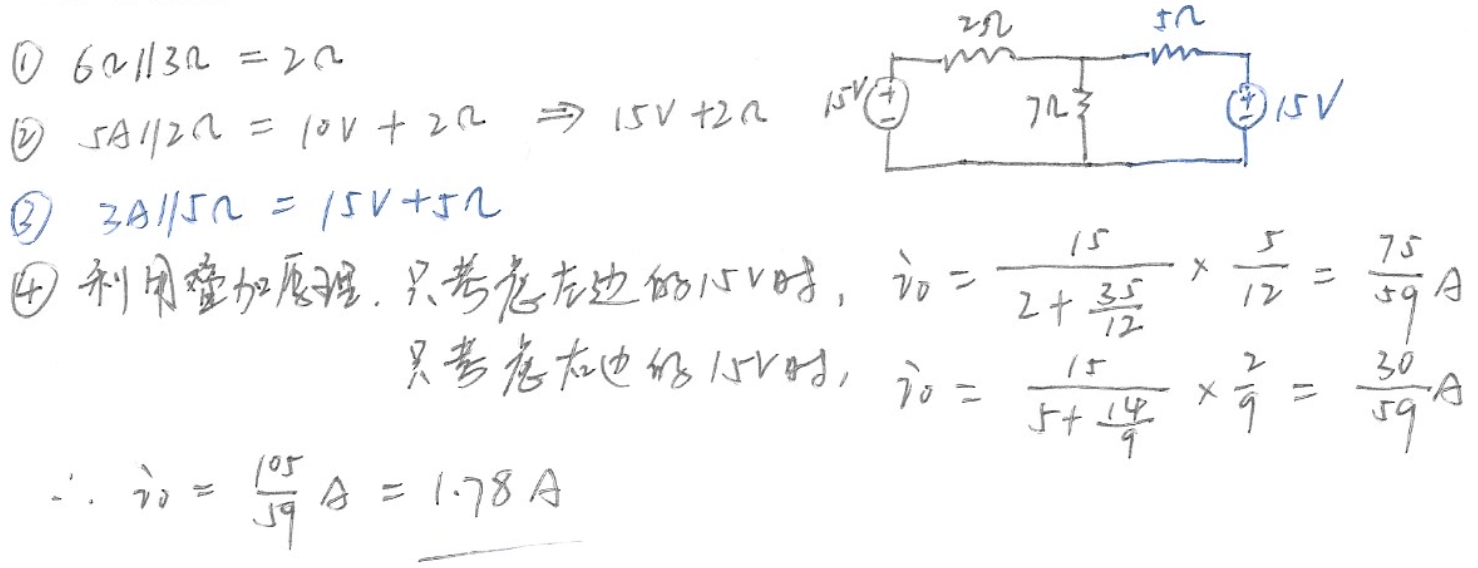 ① 6Ω//3Ω = 2Ω
② 5A//2Ω = 10V + 2Ω ⇒ 15V+2Ω
2Ω 5Ω
15V 7Ω 15V
③ 3A//5Ω = 15V+5Ω
④ 利用叠加原理. 只考虑左边的15V时, i₀ = 15/(2 + 35/12) × 5/12 = 75/59 A
只考虑右边的15V时, i₀ = 15/(5 + 14/9) × 2/9 = 30/59 A
∴ i₀ = 105/59 A = 1.78A